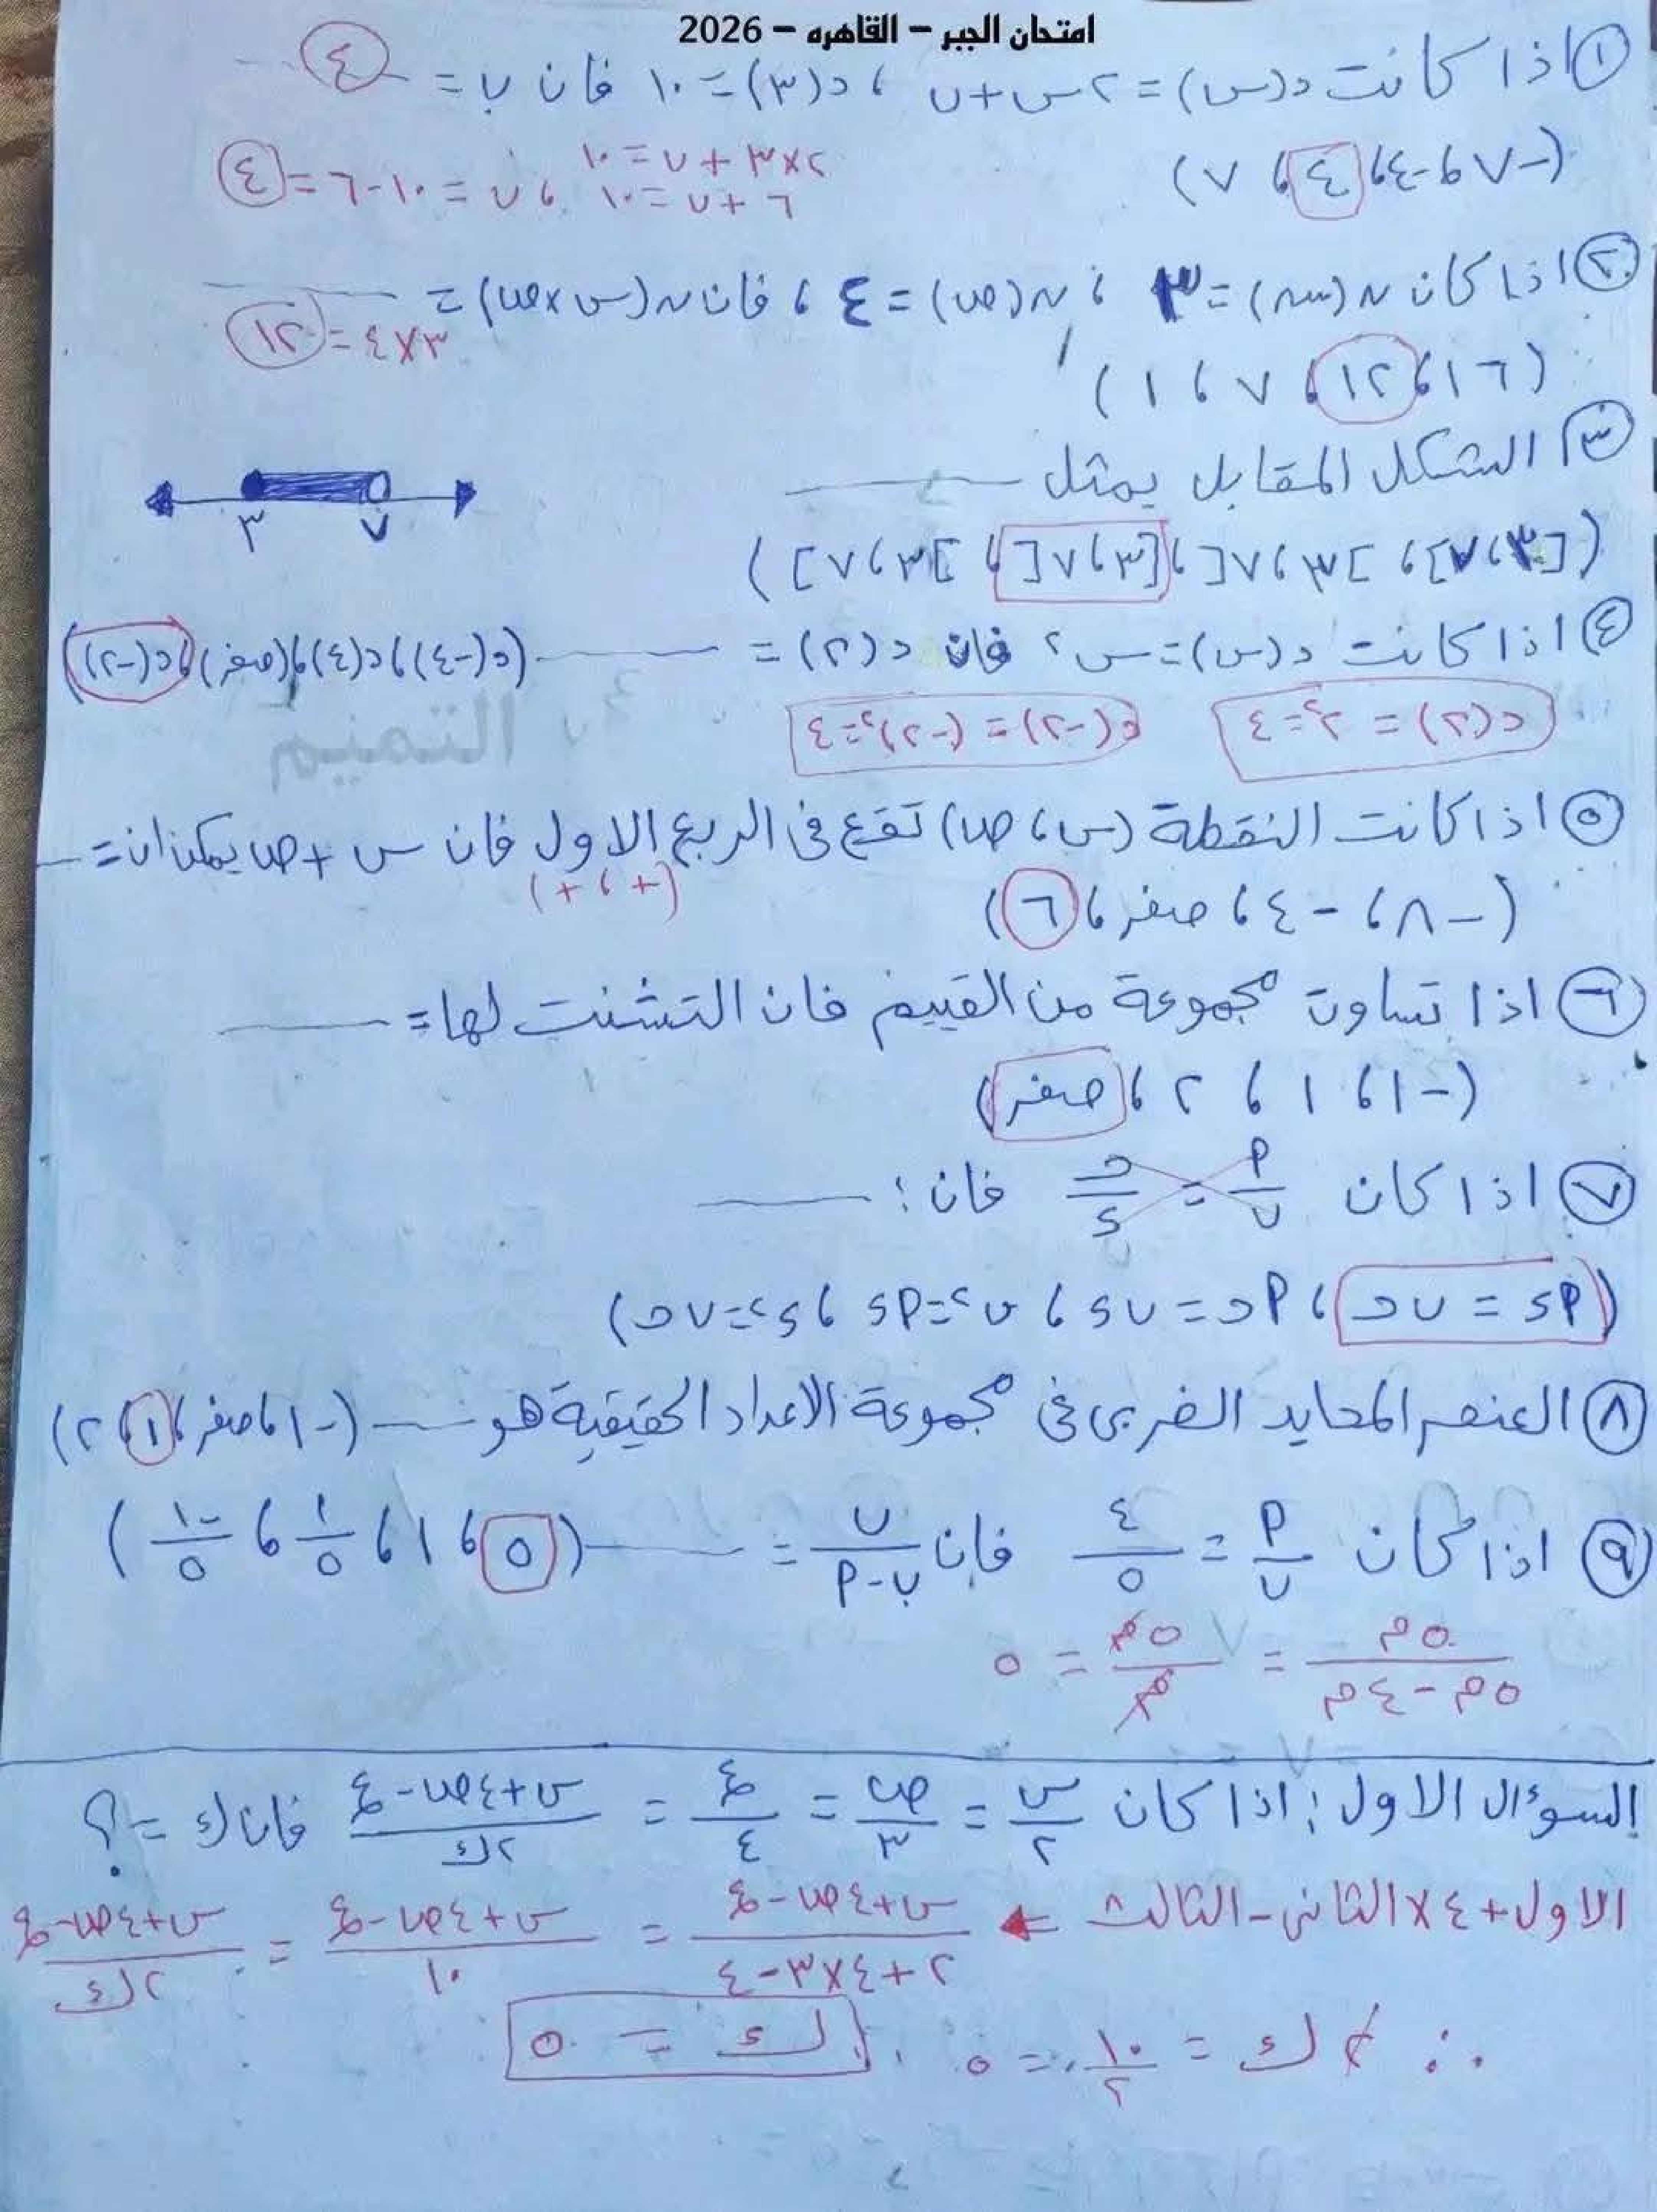 امتحان الجبر – القاهره – 2026
١ اذا كانت د(س) = ٢س + ب ، د(٣) = ١٠ فان ب = ٤
(-٧ ، -٤ ، ٤ ، ٧)
٢×٣ + ب = ١٠
٦ + ب = ١٠ ، ب = ١٠ - ٦ = ٤
٢ اذا كان ن(س) = ٣ ، ن(ص) = ٤ ، فان ن(س×ص) =
٣×٤ = ١٢
(١٦ ، ١٢ ، ٧ ، ١)
٣ الشكل المقابل يمثل
٣ ٧
([٣،٧] ، ]٣،٧[ ، [٣،٧[ ، ]٣،٧])
٤ اذا كانت د(س) = س٢ فان د(٢) = (د(-٤) ، د(٤) ، (صفر) ، د(-٢))
د(٢) = ٢٢ = ٤ د(-٢) = (-٢)٢ = ٤
٥ اذا كانت النقطة (س ، ص) تقع فى الربع الاول فان س + ص يمكن ان =
(+ ، +)
(-٨ ، -٤ ، صفر ، ٦)
٦ اذا تساوت مجموعة من القييم فان التشتت لها =
(-١ ، ١ ، ٢ ، صفر)
٧ اذا كان أ/ب = ح/د فان :
(أد = ب ح ، أح = ب د ، ب٢ = أد ، د٢ = ب ح)
٨ العنصر المحايد الضربى فى مجموعة الاعداد الحقيقية هو (-١ ، صفر ، ١ ، ٢)
٩ اذا كان أ/ب = ٤/٥ فان ب/(ب-أ) = (٥ ، ١ ، ١/٥ ، -١/٥)
٥م/(٥م-٤م) = ٥م/م = ٥
السوءال الاول : اذا كان س/٢ = ص/٣ = ع/٤ = (س+٤ص-ع)/٢ك فان ك = ؟
الاول + ٤× الثانى - الثالث ← (س+٤ص-ع)/(٢+٤×٣-٤) = (س+٤ص-ع)/١٠ = (س+٤ص-ع)/٢ك
∴ ٢ك = ١٠/٢ = ٥ ، ك = ٥